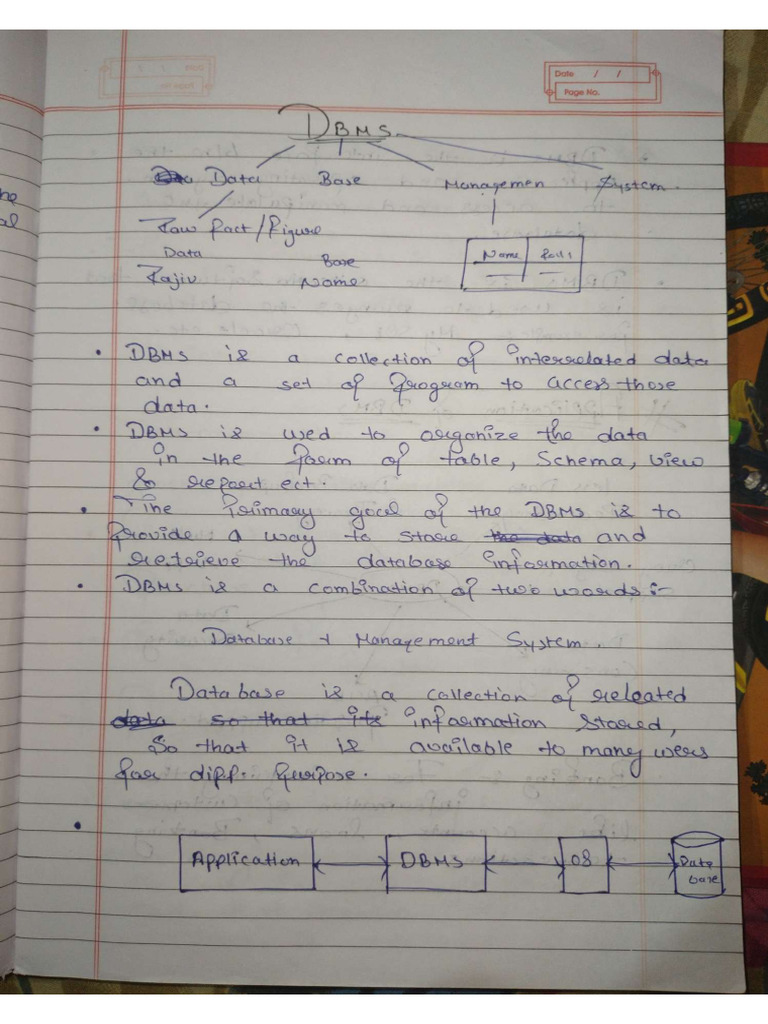 Date / /
Page No.
DBMS
Data Base Managemen System.
Raw Fact/Figure
Name Roll
Data Base
Rajiv Name
• DBMS is a collection of interrelated data
and a set of Program to access those
data.
• DBMS is used to organize the data
in the form of table, Schema, view
& report ect.
• The Primary goal of the DBMS is to
Provide a way to store the data and
retrieve the database information.
• DBMS is a combination of two words :-
Database + Management System.
Database is a collection of releated
data so that its information stored,
So that it is available to many users
for diff. purpose.
• Application DBMS OS Data
base